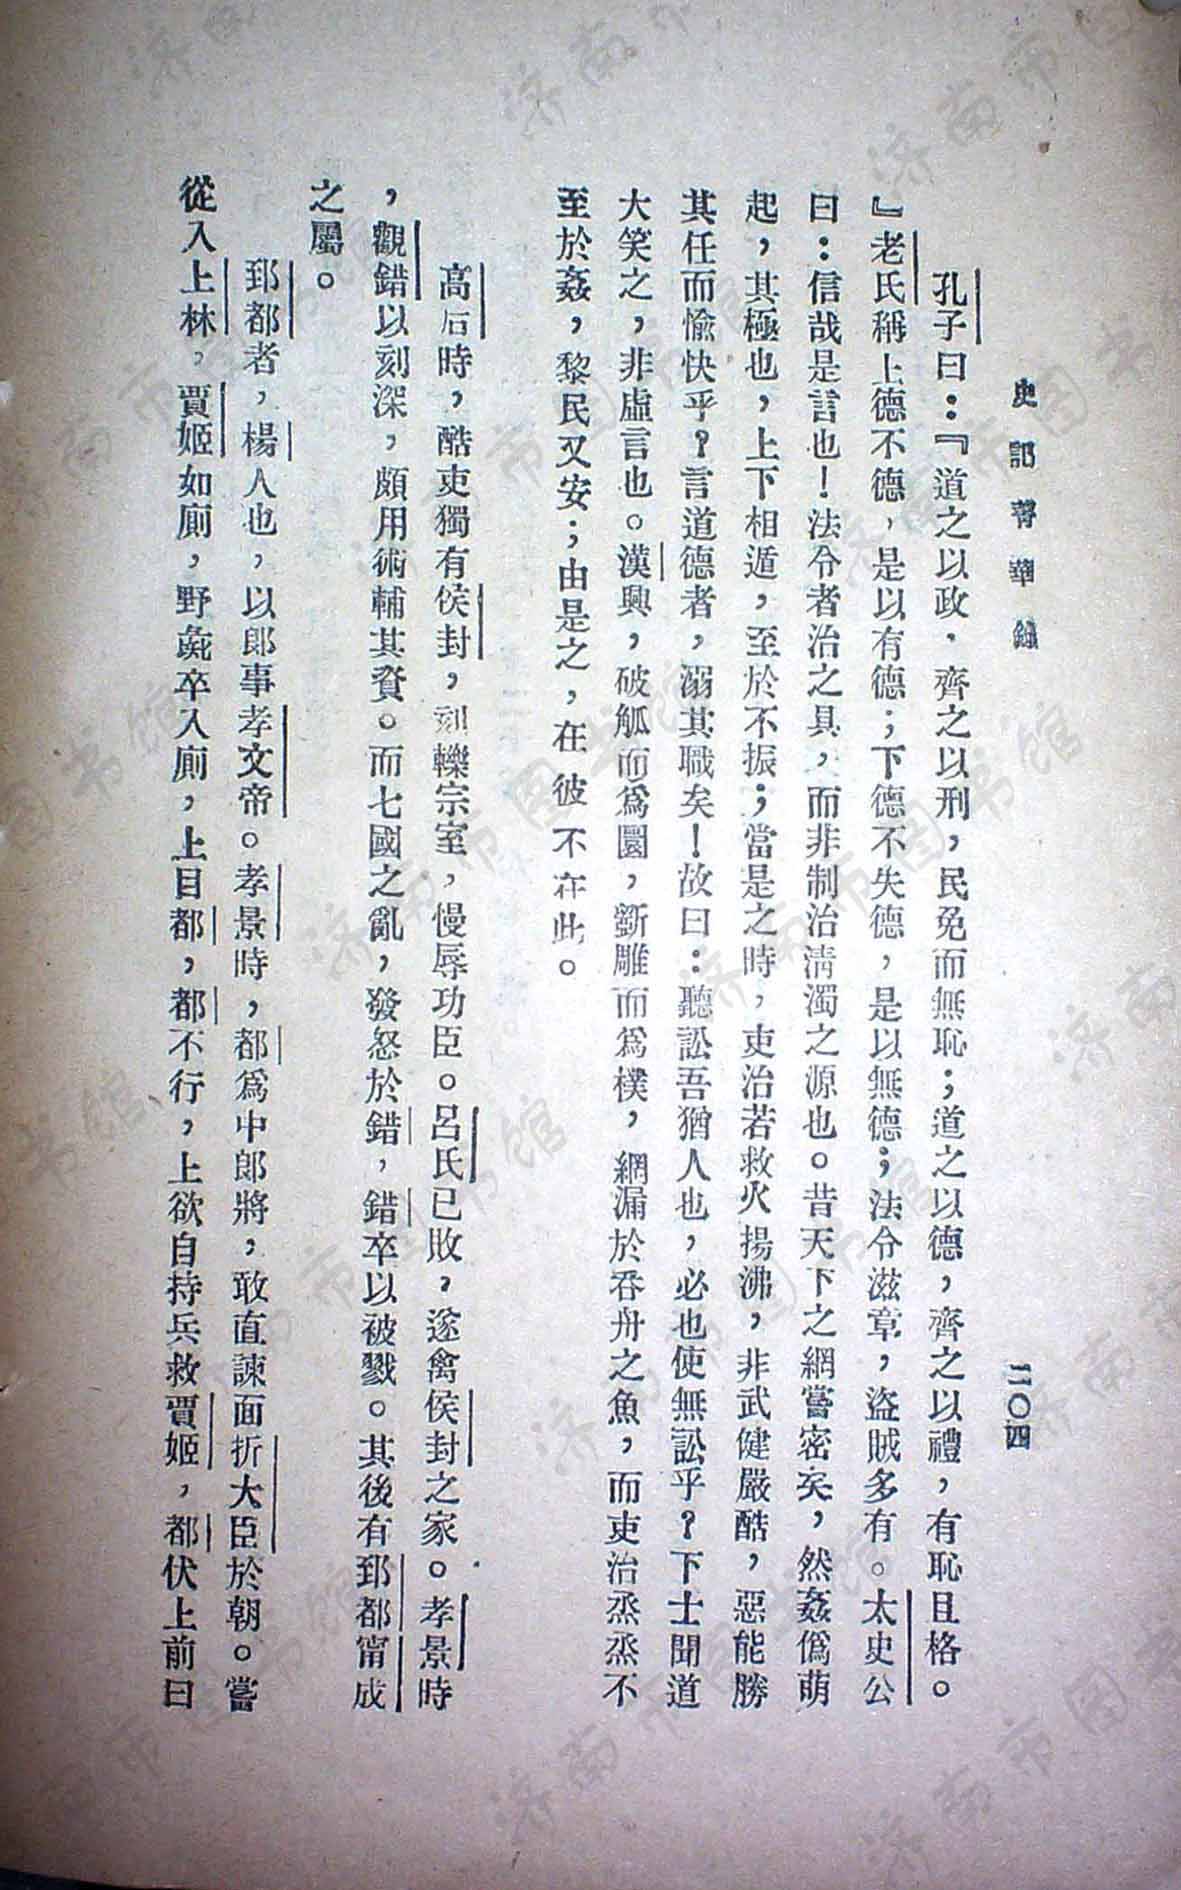 史記菁華錄
二〇四
孔子曰：『道之以政，齊之以刑，民免而無恥；道之以德，齊之以禮，有恥且格。
』老氏稱上德不德，是以有德；下德不失德，是以無德；法令滋章，盜賊多有。太史公
曰：信哉是言也！法令者治之具，而非制治淸濁之源也。昔天下之網嘗密矣，然姦僞萌
起，其極也，上下相遁，至於不振；當是之時，吏治若救火揚沸，非武健嚴酷，惡能勝
其任而愉快乎？言道德者，溺其職矣！故曰：聽訟吾猶人也，必也使無訟乎？下士聞道
大笑之，非虛言也。漢興，破觚而爲圜，斵雕而爲樸，網漏於吞舟之魚，而吏治烝烝不
至於姦，黎民又安；由是之，在彼不在此。
高后時，酷吏獨有侯封，刻轢宗室，慢辱功臣。呂氏已敗，遂禽侯封之家。孝景時
，觀錯以刻深，頗用術輔其資。而七國之亂，發怒於錯，錯卒以被戮。其後有郅都甯成
之屬。
郅都者，楊人也，以郎事孝文帝。孝景時，都爲中郎將，敢直諫面折大臣於朝。嘗
從入上林，賈姬如廁，野彘卒入廁，上目都，都不行，上欲自持兵救賈姬，都伏上前曰
济南市图书馆